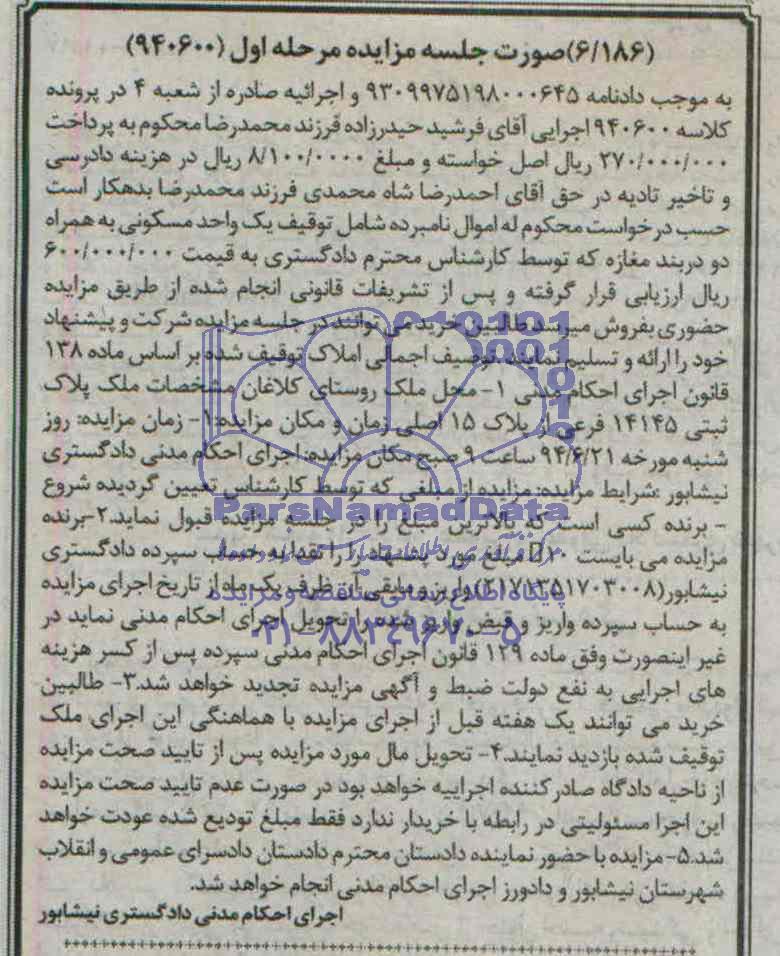 (۶/۱۸۶)صورت جلسه مزایده مرحله اول (۹۴۰۶۰۰)
به موجب دادنامه ۹۳۰۹۹۷۵۱۹۸۰۰۰۶۴۵ و اجرائیه صادره از شعبه ۴ در پرونده
کلاسه ۹۴۰۶۰۰ اجرایی آقای فرشید حیدرزاده فرزند محمدرضا محکوم به پرداخت
۲۷۰/۰۰۰/۰۰۰ ریال اصل خواسته و مبلغ ۸/۱۰۰/۰۰۰۰ ریال در هزینه دادرسی
و تاخیر تادیه در حق آقای احمدرضا شاه محمدی فرزند محمدرضا بدهکار است
حسب درخواست محکوم له اموال نامبرده شامل توقیف یک واحد مسکونی به همراه
دو دربند مغازه که توسط کارشناس محترم دادگستری به قیمت ۶۰۰/۰۰۰/۰۰۰
ریال ارزیابی قرار گرفته و پس از تشریفات قانونی انجام شده از طریق مزایده
حضوری بفروش میرسد طالبین خرید می توانند در جلسه مزایده شرکت و پیشنهاد
خود را ارائه و تسلیم نمایند.توصیف اجمالی املاک توقیف شده بر اساس ماده ۱۳۸
قانون اجرای احکام مدنی ۱- محل ملک روستای کلاغان مشخصات ملک پلاک
ثبتی ۱۴۱۴۵ فرعی از پلاک ۱۵ اصلی زمان و مکان مزایده:۱- زمان مزایده: روز
شنبه مورخه ۹۴/۶/۲۱ ساعت ۹ صبح مکان مزایده: اجرای احکام مدنی دادگستری
نیشابور :شرایط مزایده: مزایده از مبلغی که توسط کارشناس تعیین گردیده شروع
- برنده کسی است که بالاترین مبلغ را در جلسه مزایده قبول نماید.۲-برنده
مزایده می بایست ۱۰ مبلغ مورد پیشنهاد را نقدا به حساب سپرده دادگستری
نیشابور(۲۱۷۱۳۵۱۷۰۳۰۰۸)واریز و مابقی آن ظرف یک ماه از تاریخ اجرای مزایده
به حساب سپرده واریز و قبض واریز شده را تحویل اجرای احکام مدنی نماید در
غیر اینصورت وفق ماده ۱۲۹ قانون اجرای احکام مدنی سپرده پس از کسر هزینه
های اجرایی به نفع دولت ضبط و آگهی مزایده تجدید خواهد شد.۳- طالبین
خرید می توانند یک هفته قبل از اجرای مزایده با هماهنگی این اجرای ملک
توقیف شده بازدید نمایند.۴- تحویل مال مورد مزایده پس از تایید صحت مزایده
از ناحیه دادگاه صادر کننده اجراییه خواهد بود در صورت عدم تایید صحت مزایده
این اجرا مسئولیتی در رابطه با خریدار ندارد فقط مبلغ تودیع شده عودت خواهد
شد.۵- مزایده با حضور نماینده دادستان محترم دادستان دادسرای عمومی و انقلاب
شهرستان نیشابور و دادورز اجرای احکام مدنی انجام خواهد شد.
اجرای احکام مدنی دادگستری نیشابور
ParsNamadData
پایگاه اطلاع رسانی مناقصه و مزایده
۰۲۱-۸۸۳۴۹۶۷۰-۵